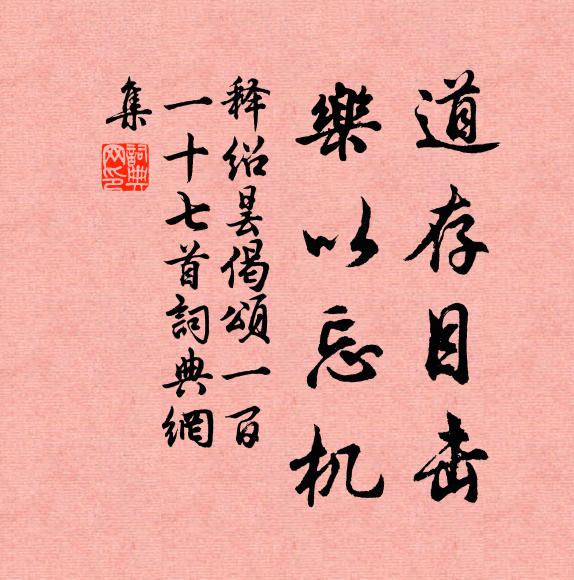 道存目击
樂以忘机
释绍昙偈頌一百
一十七首詞典網
集
詞典
网印